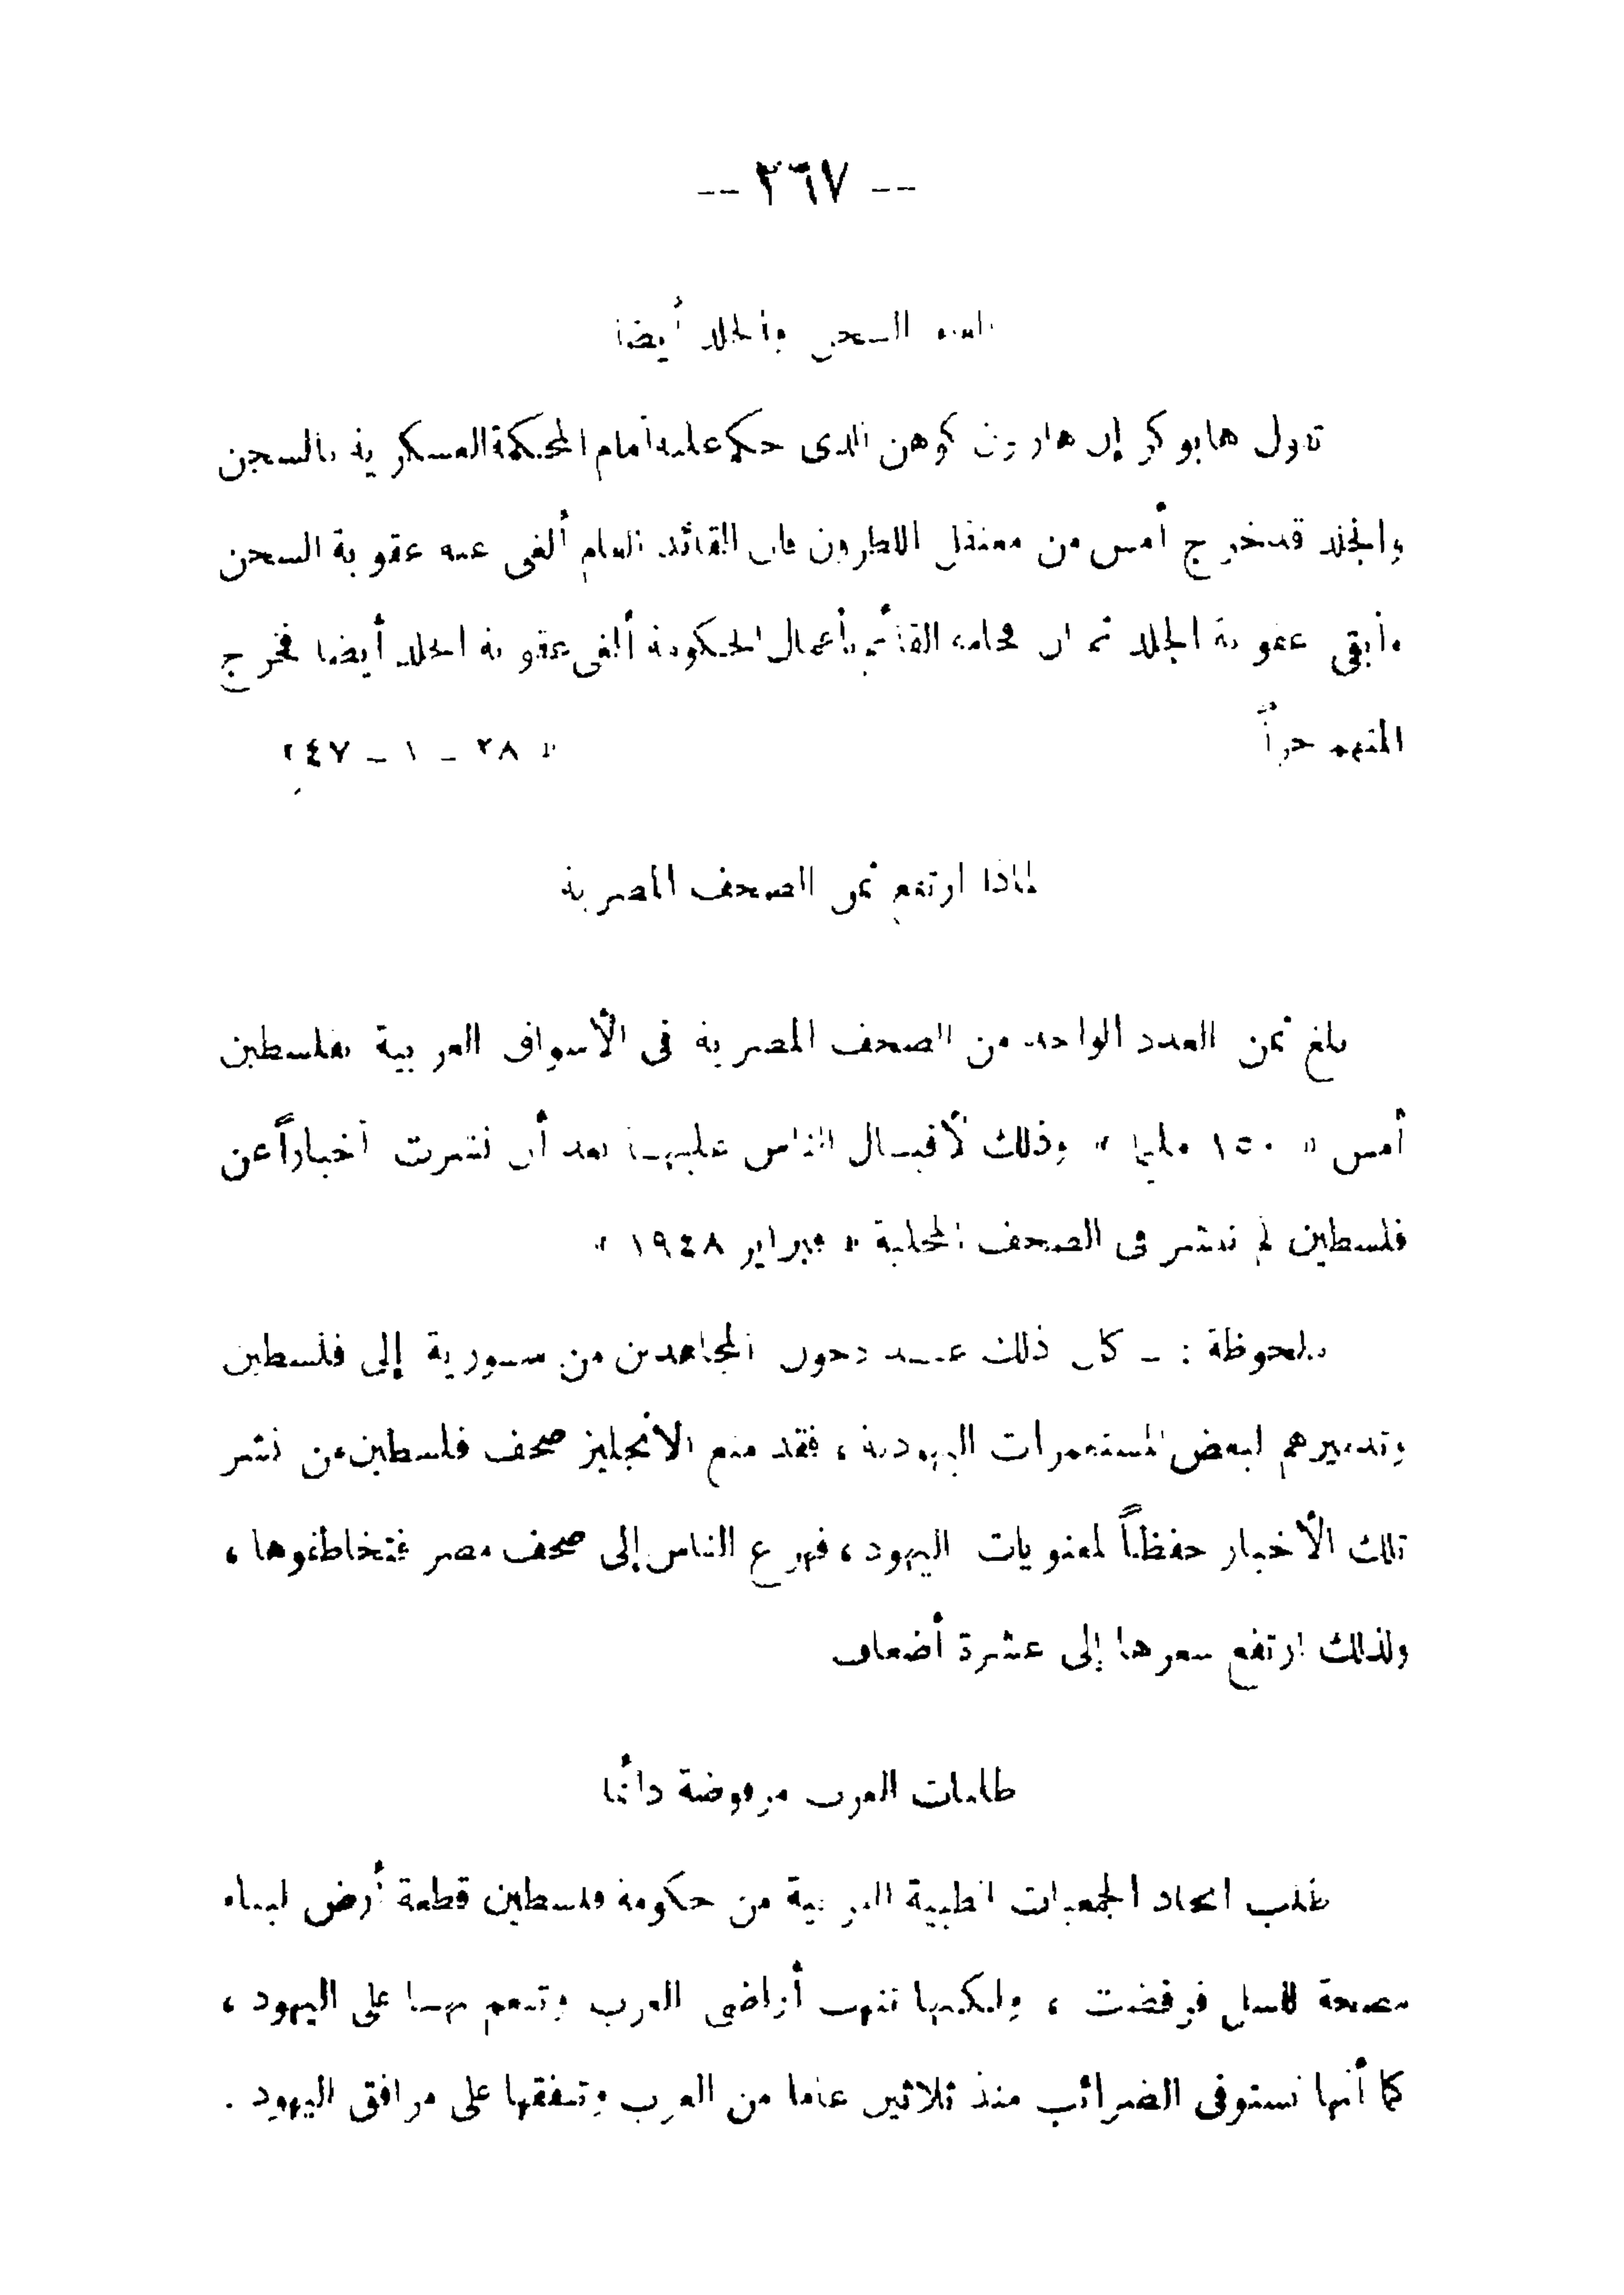 -- ٣٦٧ --
إلغاء السجن والجلد أيضا
تقول هابوكر إن هارون كوهن الذى حكم عليه أمام المحكمة العسكرية بالسجن
والجلد قد خرج أمس من معتقل اللطرون فان القائد العام ألغى عنه عقوبة السجن
وأبقى عقوبة الجلد ثم ان فخامة القائم بأعمال الحكومة ألغى عقوبة الجلد أيضا فخرج
المتهم حراً « ٢٨ ـ ١ ـ ٤٧ »
لماذا ارتفع ثمن الصحف المصرية
بلغ ثمن العدد الواحد من الصحف المصرية فى الأسواق العربية بفلسطين
أمس « ١٥٠ مليا » وذلك لأقبال الناس عليها بعد أن نشرت أخباراً عن
فلسطين لم تنشر فى الصحف المحلية « فبراير ١٩٤٨ »
ملحوظة : ـ كان ذلك عند دخول المجاهدين من سورية إلى فلسطين
وتدميرهم لبعض المستعمرات اليهودية ، فقد منع الانجليز صحف فلسطين عن نشر
تلك الأخبار حفظاً لمعنويات اليهود ، فهرع الناس إلى صحف مصر فتخاطفوها ،
ولذلك ارتفع سعرها إلى عشرة أضعاف
طلبات العرب مرفوضة دائما
طلب اتحاد الجمعيات الطبية العربية من حكومة فلسطين قطعة أرض لبناء
مصحة للسل فرفضت ، ولكنها تنهب أراضى العرب وتنعم بها على اليهود ،
كما أنها تستوفى الضرائب منذ ثلاثين عاما من العرب وتنفقها على مرافق اليهود .